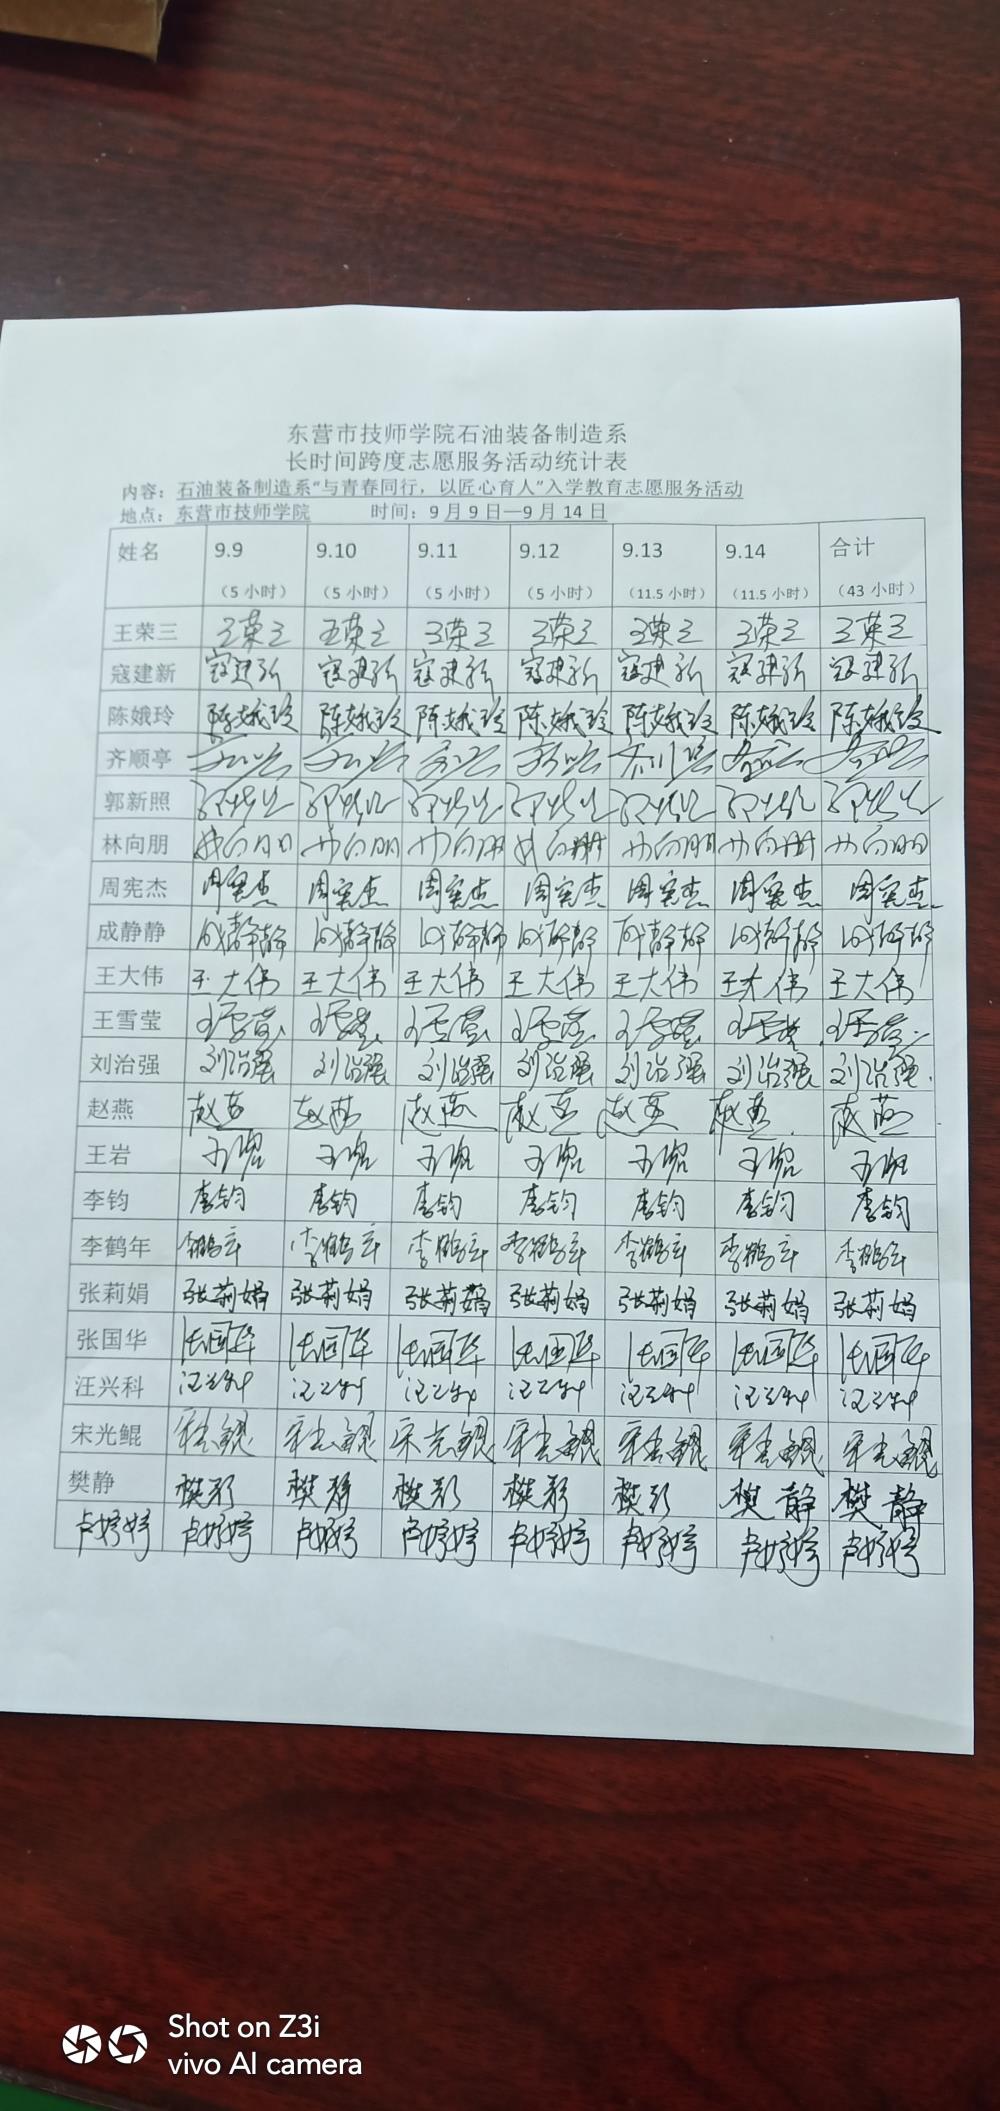 东营市技师学院石油装备制造系
长时间跨度志愿服务活动统计表
内容：石油装备制造系“与青春同行，以匠心育人”入学教育志愿服务活动
地点：东营市技师学院 时间：9月9日—9月14日
姓名 9.9 9.10 9.11 9.12 9.13 9.14 合计
（5小时） （5小时） （5小时） （5小时） （11.5小时） （11.5小时） （43小时）
王荣三 王荣三 王荣三 王荣三 王荣三 王荣三 王荣三 王荣三
寇建新 寇建新 寇建新 寇建新 寇建新 寇建新 寇建新 寇建新
陈娥玲 陈娥玲 陈娥玲 陈娥玲 陈娥玲 陈娥玲 陈娥玲 陈娥玲
齐顺亭
郭新照
林向朋 林向朋 林向朋 林向朋 林向朋 林向朋 林向朋 林向朋
周宪杰 周宪杰 周宪杰 周宪杰 周宪杰 周宪杰 周宪杰 周宪杰
成静静 成静静 成静静 成静静 成静静 成静静 成静静 成静静
王大伟 王大伟 王大伟 王大伟 王大伟 王大伟 王大伟 王大伟
王雪莹 王雪莹 王雪莹 王雪莹 王雪莹 王雪莹 王雪莹 王雪莹
刘治强 刘治强 刘治强 刘治强 刘治强 刘治强 刘治强 刘治强
赵燕 赵燕 赵燕 赵燕 赵燕 赵燕 赵燕 赵燕
王岩 王岩 王岩 王岩 王岩 王岩 王岩 王岩
李钧 李钧 李钧 李钧 李钧 李钧 李钧 李钧
李鹤年 李鹤年 李鹤年 李鹤年 李鹤年 李鹤年 李鹤年 李鹤年
张莉娟 张莉娟 张莉娟 张莉娟 张莉娟 张莉娟 张莉娟 张莉娟
张国华 张国华 张国华 张国华 张国华 张国华 张国华 张国华
汪兴科 汪兴科 汪兴科 汪兴科 汪兴科 汪兴科 汪兴科 汪兴科
宋光鲲 宋光鲲 宋光鲲 宋光鲲 宋光鲲 宋光鲲 宋光鲲 宋光鲲
樊静 樊静 樊静 樊静 樊静 樊静 樊静 樊静
卢婷婷 卢婷婷 卢婷婷 卢婷婷 卢婷婷 卢婷婷 卢婷婷 卢婷婷
Shot on Z3i
vivo AI camera